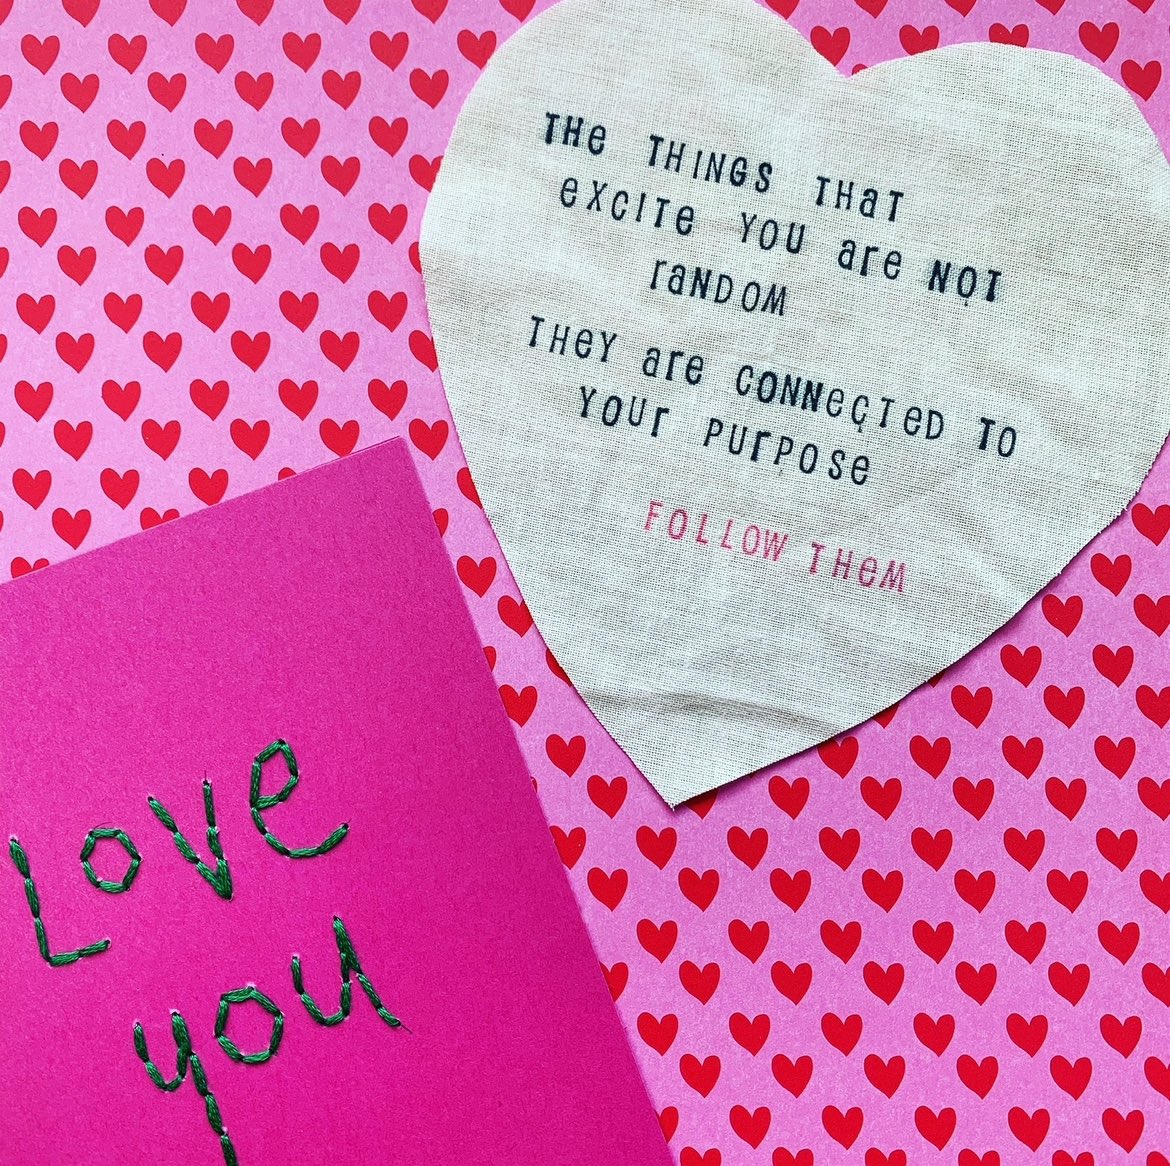 THe THINGS THaT
eXCITe YOU are NOT
raNDOM
THeY are CONNeCTeD TO
YOUr PUrPOSe
FOLLOW THeM
Love
you